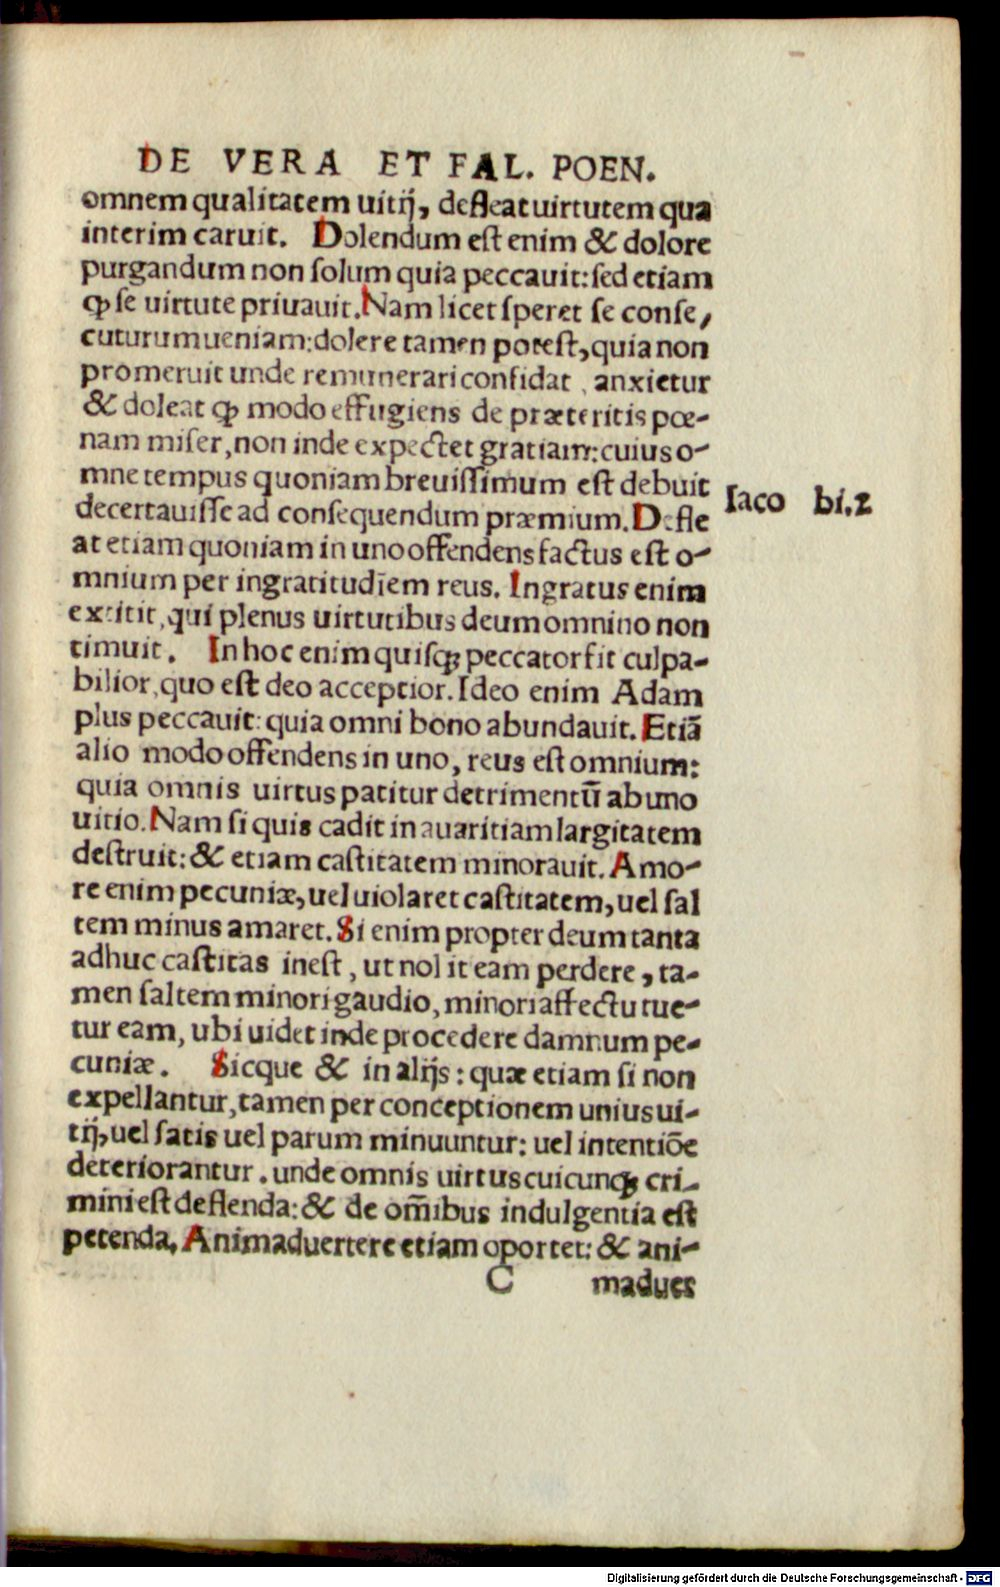 DE VERA ET FAL. POEN.
omnem qualitatem uitĳ, defleat uirtutem qua
interim caruit. Dolendum est enim & dolore
purgandum non solum quia peccauit: sed etiam
ꝙ se uirtute priuauit. Nam licet speret se conse,
cuturum ueniam: dolere tamen potest, quia non
promeruit unde remunerari confidat, anxietur
& doleat ꝙ modo effugiens de præteritis pœ-
nam miser, non inde expectet gratiam: cuius o-
mne tempus quoniam breuissimum est debuit
Iaco bi.2
decertauisse ad consequendum præmium. Defle
at etiam quoniam in uno offendens factus est o-
mnium per ingratitudiēm reus. Ingratus enim
extitit, qui plenus uirtutibus deum omnino non
timuit. In hoc enim quisqꝫ peccator fit culpa-
bilior, quo est deo acceptior. Ideo enim Adam
plus peccauit: quia omni bono abundauit. Etiã
alio modo offendens in uno, reus est omnium:
quia omnis uirtus patitur detrimentū ab uno
uitio. Nam si quis cadit in auaritiam largitatem
destruit: & etiam castitatem minorauit. Amo-
re enim pecuniæ, uel uiolaret castitatem, uel sal
tem minus amaret. Si enim propter deum tanta
adhuc castitas inest, ut nolit eam perdere, ta-
men saltem minori gaudio, minori affectu tue-
tur eam, ubi uidet inde procedere damnum pe-
cuniæ. Sicque & in alĳs: quæ etiam si non
expellantur, tamen per conceptionem unius ui-
tĳ, uel satis uel parum minuuntur: uel intentiõe
deteriorantur. unde omnis uirtus cuicunqꝫ cri-
mini est deflenda: & de om̃ibus indulgentia est
petenda. Animaduertere etiam oportet: & ani-
C madues
Digitalisierung gefördert durch die Deutsche Forschungsgemeinschaft - DFG